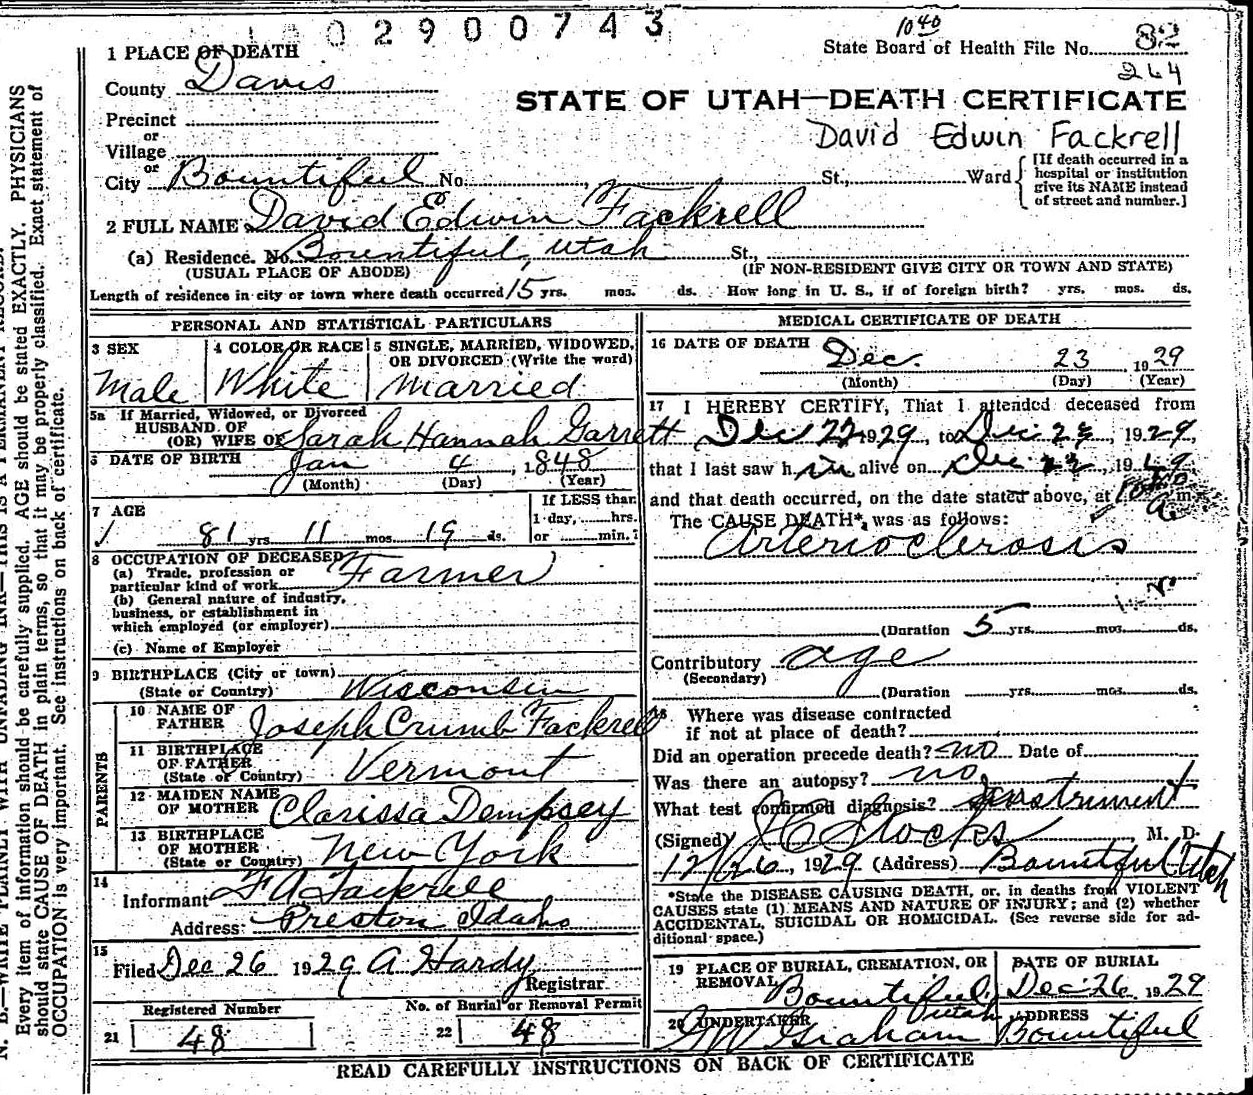 02900743
1 PLACE OF DEATH
1040
State Board of Health File No. 82
264
County Davis
STATE OF UTAH—DEATH CERTIFICATE
Precinct
or
Village
David Edwin Fackrell
or
City Bountiful No. St., Ward
[If death occurred in a
hospital or institution
give its NAME instead
of street and number.]
2 FULL NAME David Edwin Fackrell
(a) Residence. No. Bountiful, Utah St.,
(USUAL PLACE OF ABODE) (IF NON-RESIDENT GIVE CITY OR TOWN AND STATE)
Length of residence in city or town where death occurred 15 yrs. mos. ds. How long in U. S., if of foreign birth? yrs. mos. ds.
PERSONAL AND STATISTICAL PARTICULARS
3 SEX
Male
4 COLOR OR RACE
White
5 SINGLE, MARRIED, WIDOWED,
OR DIVORCED (Write the word)
Married
5a If Married, Widowed, or Divorced
HUSBAND OF
(OR) WIFE OF Sarah Hannah Garrett
6 DATE OF BIRTH Jan 4, 1848
(Month) (Day) (Year)
7 AGE
81 yrs. 11 mos. 19 ds.
If LESS than
1 day, hrs.
or min.?
8 OCCUPATION OF DECEASED
(a) Trade, profession or
particular kind of work Farmer
(b) General nature of industry,
business, or establishment in
which employed (or employer)
(c) Name of Employer
9 BIRTHPLACE (City or town)
(State or Country) Wisconsin
PARENTS
10 NAME OF
FATHER Joseph Crumb Fackrell
11 BIRTHPLACE
OF FATHER
(State or Country) Vermont
12 MAIDEN NAME
OF MOTHER Clarissa Dempsey
13 BIRTHPLACE
OF MOTHER
(State or Country) New York
14
Informant F A Fackrell
Address: Preston Idaho
15
Filed Dec 26 1929 A Hardy
Registrar
Registered Number
21 48
No. of Burial or Removal Permit
22 48
MEDICAL CERTIFICATE OF DEATH
16 DATE OF DEATH Dec. 23 1929
(Month) (Day) (Year)
17 I HEREBY CERTIFY, That I attended deceased from
Dec 22 1929, to Dec 23, 1929,
that I last saw h im alive on Dec 23, 1929,
and that death occurred, on the date stated above, at m.
The CAUSE DEATH*, was as follows:
Arteriosclerosis
(Duration 5 yrs. mos. ds.
Contributory age
(Secondary)
(Duration yrs. mos. ds.
18 Where was disease contracted
if not at place of death?
Did an operation precede death? no Date of
Was there an autopsy? no
What test confirmed diagnosis? Instrument
(Signed) Stocks, M. D.
12/26, 1929 (Address) Bountiful Utah
*State the DISEASE CAUSING DEATH, or, in deaths from VIOLENT
CAUSES state (1) MEANS AND NATURE OF INJURY; and (2) whether
ACCIDENTAL, SUICIDAL OR HOMICIDAL. (See reverse side for ad-
ditional space.)
19 PLACE OF BURIAL, CREMATION, OR
REMOVAL Bountiful, Utah
DATE OF BURIAL
Dec 26 1929
20 UNDERTAKER
Graham
ADDRESS
Bountiful
READ CAREFULLY INSTRUCTIONS ON BACK OF CERTIFICATE
N. B.—WRITE PLAINLY WITH UNFADING INK—THIS IS A PERMANENT RECORD.
Every item of information should be carefully supplied. AGE should be stated EXACTLY. PHYSICIANS
should state CAUSE OF DEATH in plain terms, so that it may be properly classified. Exact statement of
OCCUPATION is very important. See instructions on back of certificate.